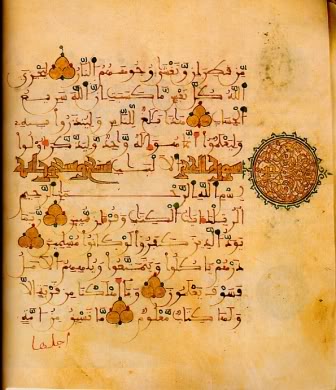 من قطران وتغشى وجوههم النار ليجزي
الله كل نفس ما كسبت إن الله سريع
الحساب هذا بلغ للناس ولينذروا به
وليعلموا أنما هو إله واحد وليذكر أولوا
سورة الحجر الألبب تسع وتسعون آية
بسم الله الرحمن الرحيم
الر تلك آيت الكتب وقرءان مبين ربما
يود الذين كفروا لو كانوا مسلمين
ذرهم ياكلوا ويتمتعوا ويلههم الأمل
فسوف يعلمون وما أهلكنا من قرية إلا
ولها كتاب معلوم ما تسبق من أمة
أجلها